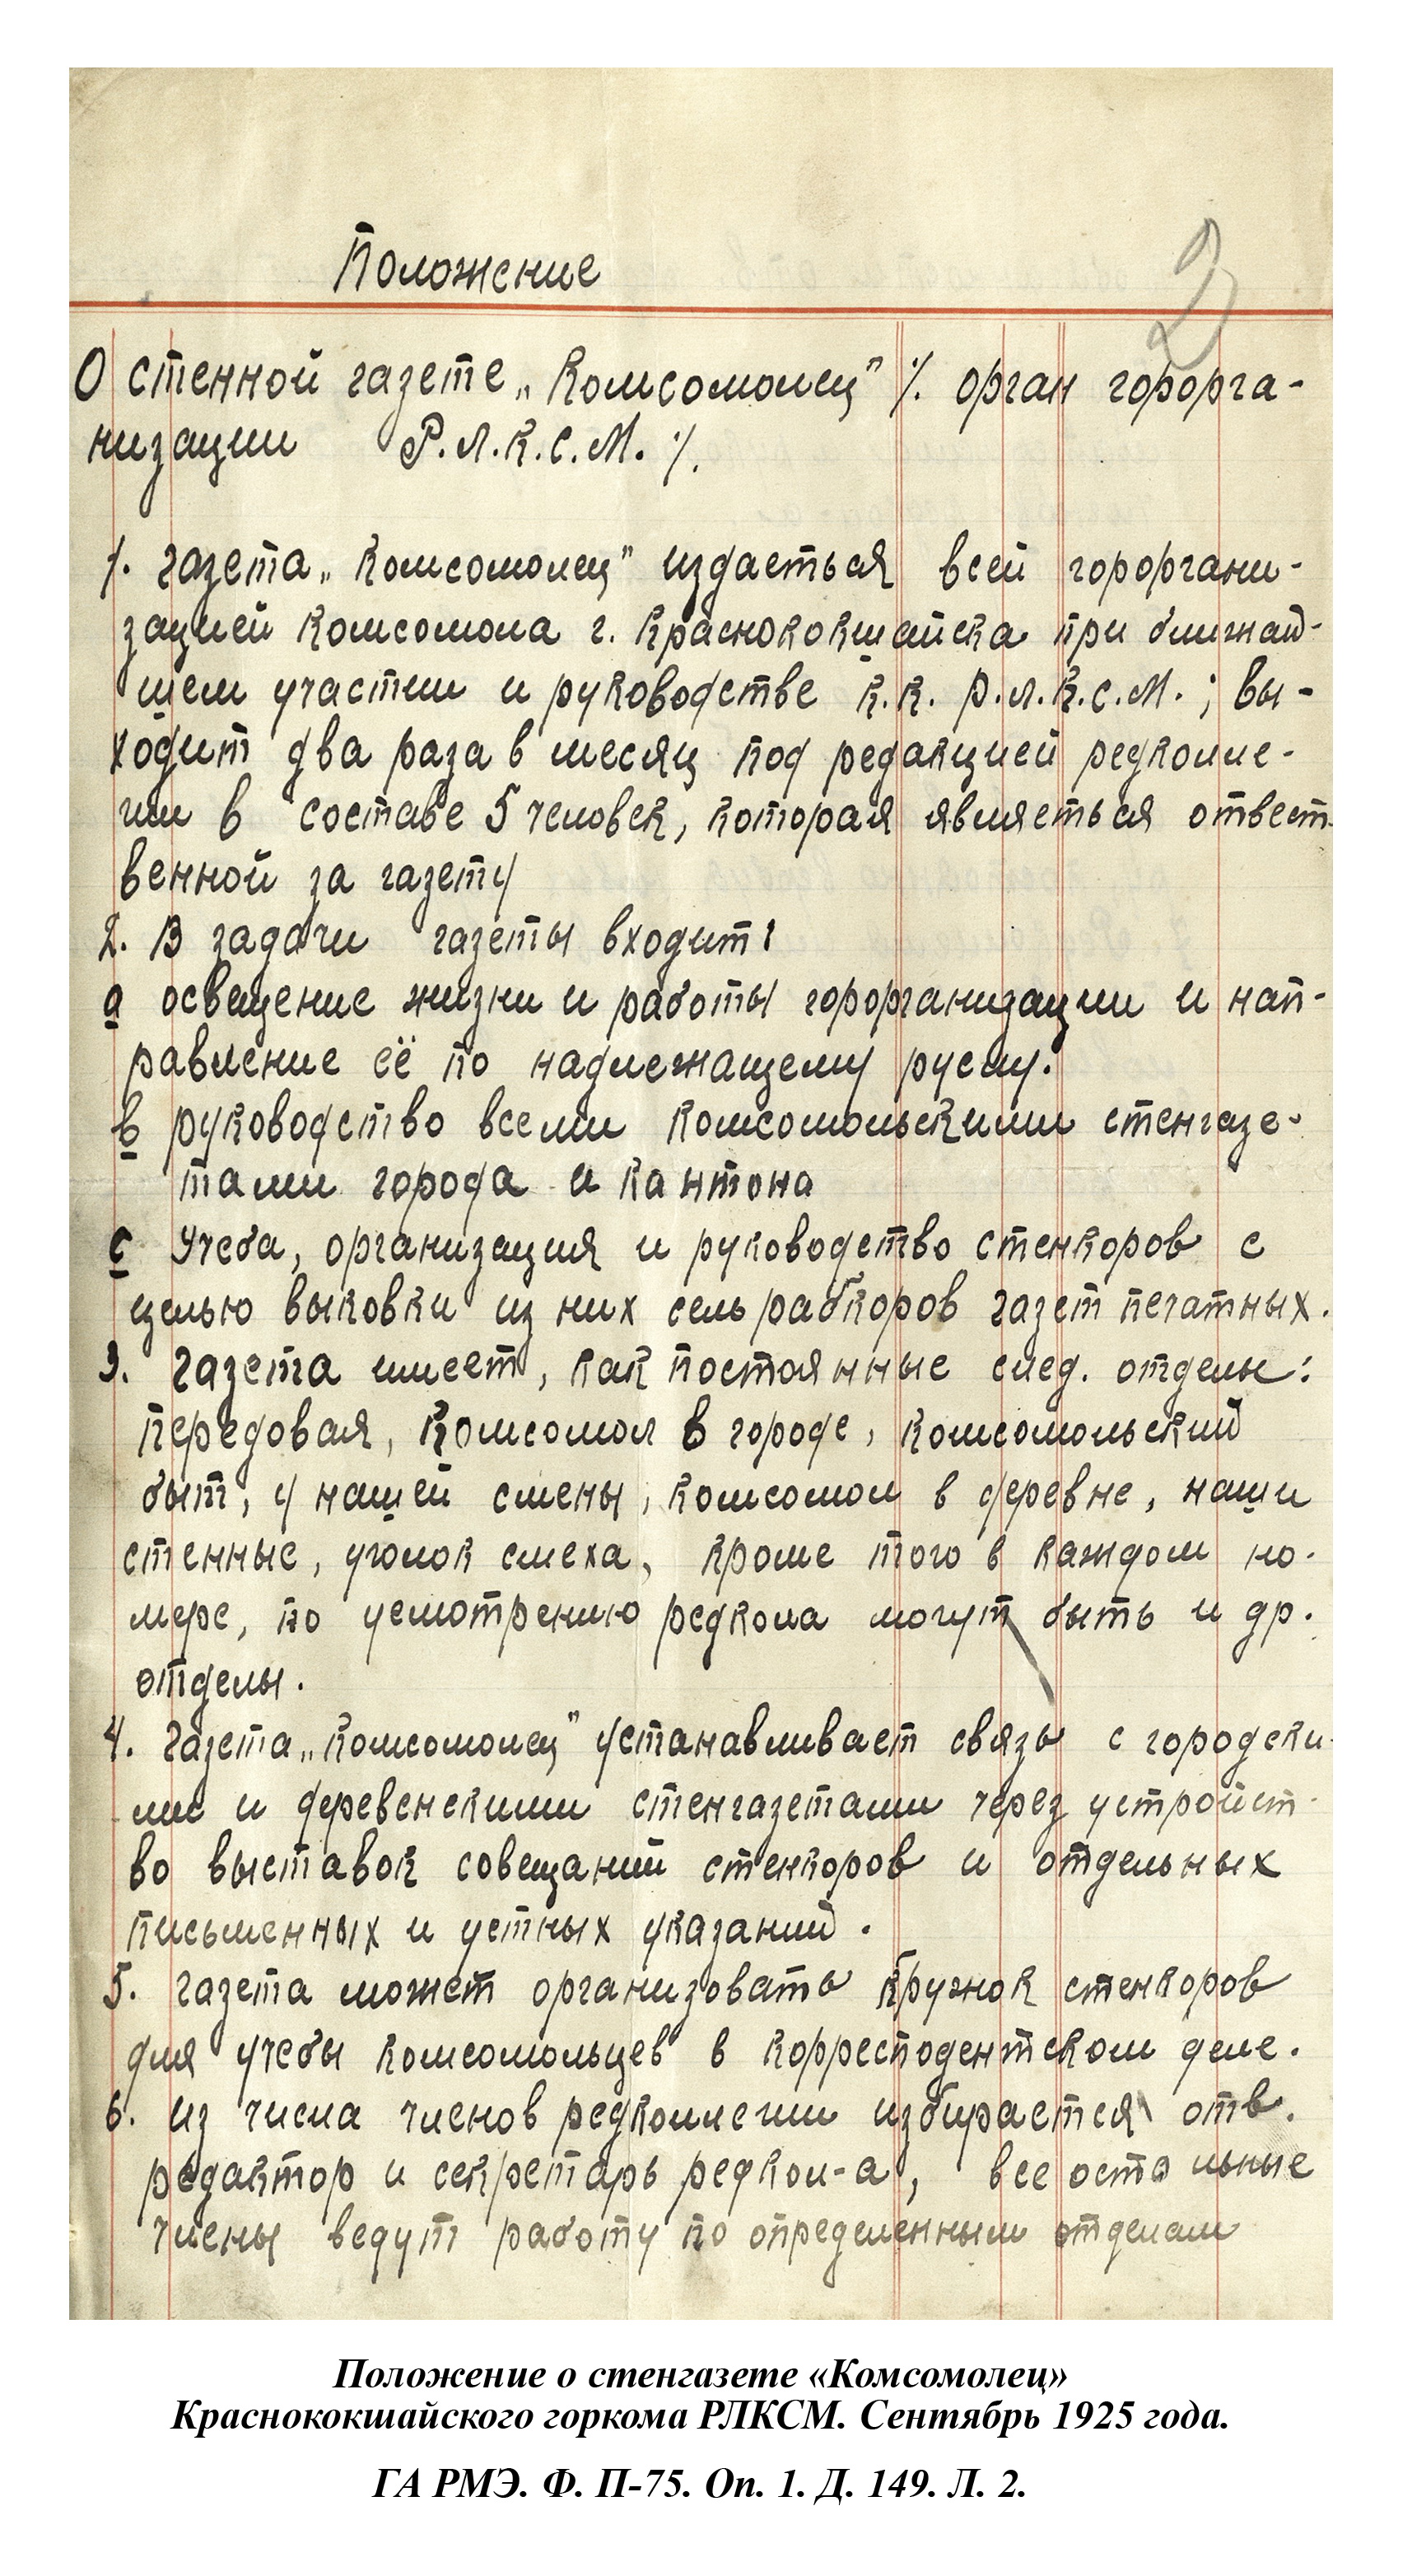 2
Положение
О стенной газете „Комсомолец" ⁒ орган горорга-
низации Р.Л.К.С.М. ⁒
1. Газета „Комсомолец" издаеться всей горорганн-
зацией комсомола г. Краснококшайска при ближай-
шем участии и руководстве К.К. Р.Л.К.С.М.; вы-
ходит два раза в месяц под редакцией редколле-
гии в составе 5 человек, которая являеться ответст-
венной за газету
2. В задачи газеты входит:
а освещение жизни и работы горорганизации и нап-
равление её по надлежащему руслу.
в руководство всеми комсомольскими стенгазе-
тами города и кантона
с Учеба, организация и руководство стенкоров с
целью выковки из них сельрабкоров газет печатных.
3. Газета имеет, как постоянные след. отделы:
передовая, комсомол в городе, комсомольский
быт, у нашей смены, комсомол в деревне, наши
стенные, уголок смеха, кроме того в каждом но-
мере, по усмотрению редкола могут быть и др.
отделы.
4. Газета „Комсомолец" устанавливает связь с городски-
ми и деревенскими стенгазетами через устройст-
во выставок совещаний стенкоров и отдельных
письменных и устных указаний.
5. Газета может организовать кружок стенкоров
для учебы комсомольцев в корресподентском деле.
6. Из числа членов редколлегии избирается отв.
редактор и секретарь редкол-а, все остальные
члены ведут работу по определенным отделам
Положение о стенгазете «Комсомолец»
Краснококшайского горкома РЛКСМ. Сентябрь 1925 года.
ГА РМЭ. Ф. П-75. Оп. 1. Д. 149. Л. 2.